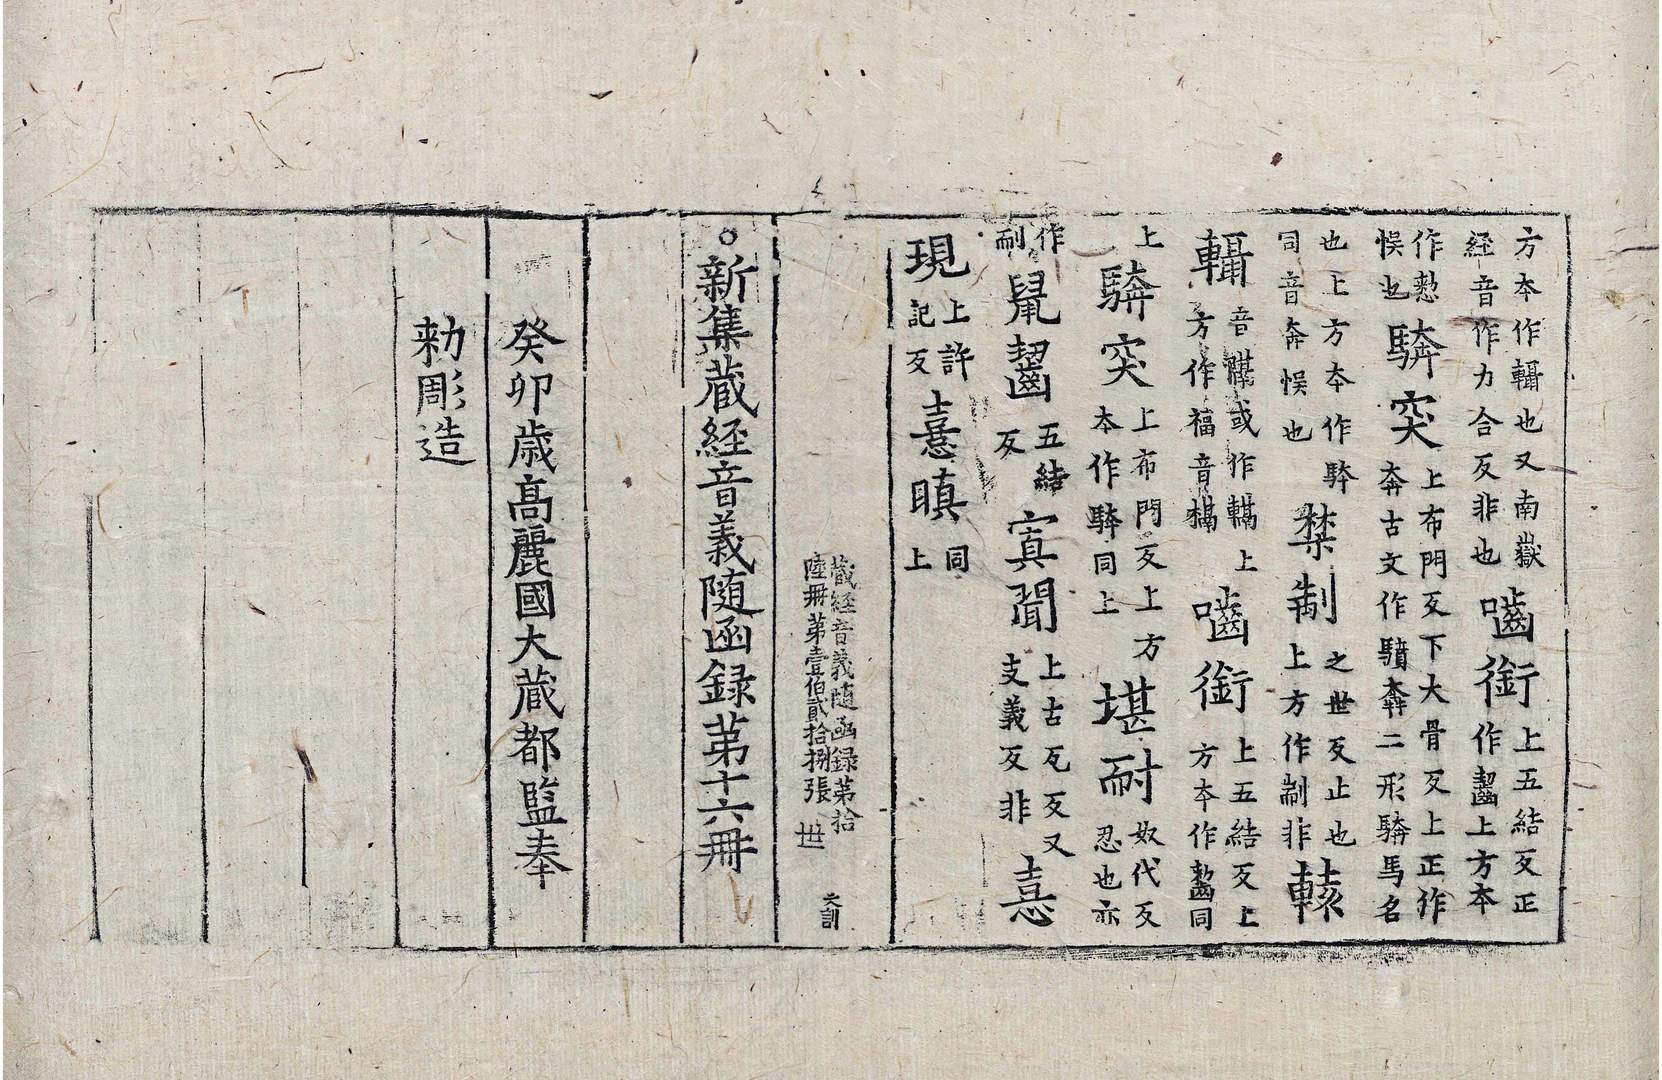 方本作轜也又南嶽
経音作力合反非也
嚙銜
上五結反正
作齧上方本
作懃
悮也
騎突
上布門反下大骨反上正作
奔古文作驞奔二形騎馬名
也上方本作騂
同音奔悮也
禁制
之世反止也
上方作制非
轅
轜
方作福音
嚙銜
上五結反上
方本作齧同
上
騎突
上布門反上方
本作騎同上
堪耐
奴代反
忍也亦
作
耐
鼠齧
五結
反
寘聞
上古瓦反又
支義反非
憙
現
上許
記反
憙瞋
同
上
蔵経音義随函録第拾
陸冊第壹伯貳拾捌張
丗
文訓
新集蔵経音義随函録第十六冊
癸卯歳高麗國大蔵都監奉
勑彫造